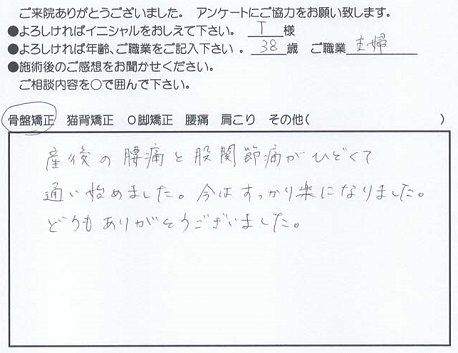 ご来院ありがとうございました。 アンケートにご協力をお願い致します。
●よろしければイニシャルをおしえて下さい。 T 様
●よろしければ年齢、ご職業をご記入下さい。 38 歳 ご職業 主婦
●施術後のご感想をお聞かせください。
ご相談内容を○で囲んで下さい。
骨盤矯正 猫背矯正 O脚矯正 腰痛 肩こり その他( )
産後の腰痛と股関節痛がひどくて
通い始めました。今はすっかり楽になりました。
どうもありがとうございました。